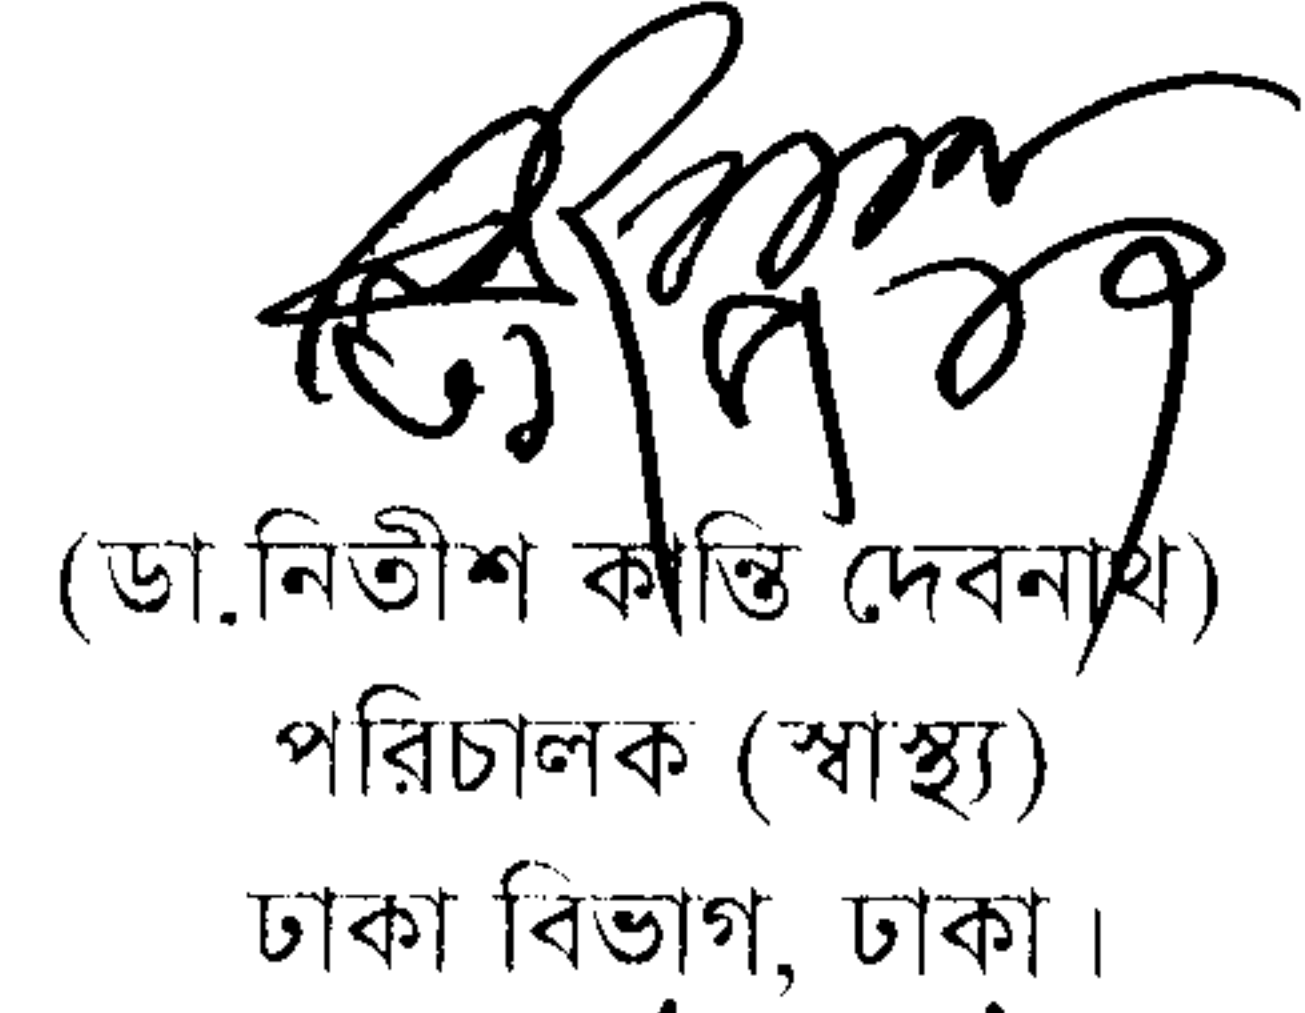 (ডা.নিতীশ কান্তি দেবনাথ)
পরিচালক (স্বাস্থ্য)
ঢাকা বিভাগ, ঢাকা।